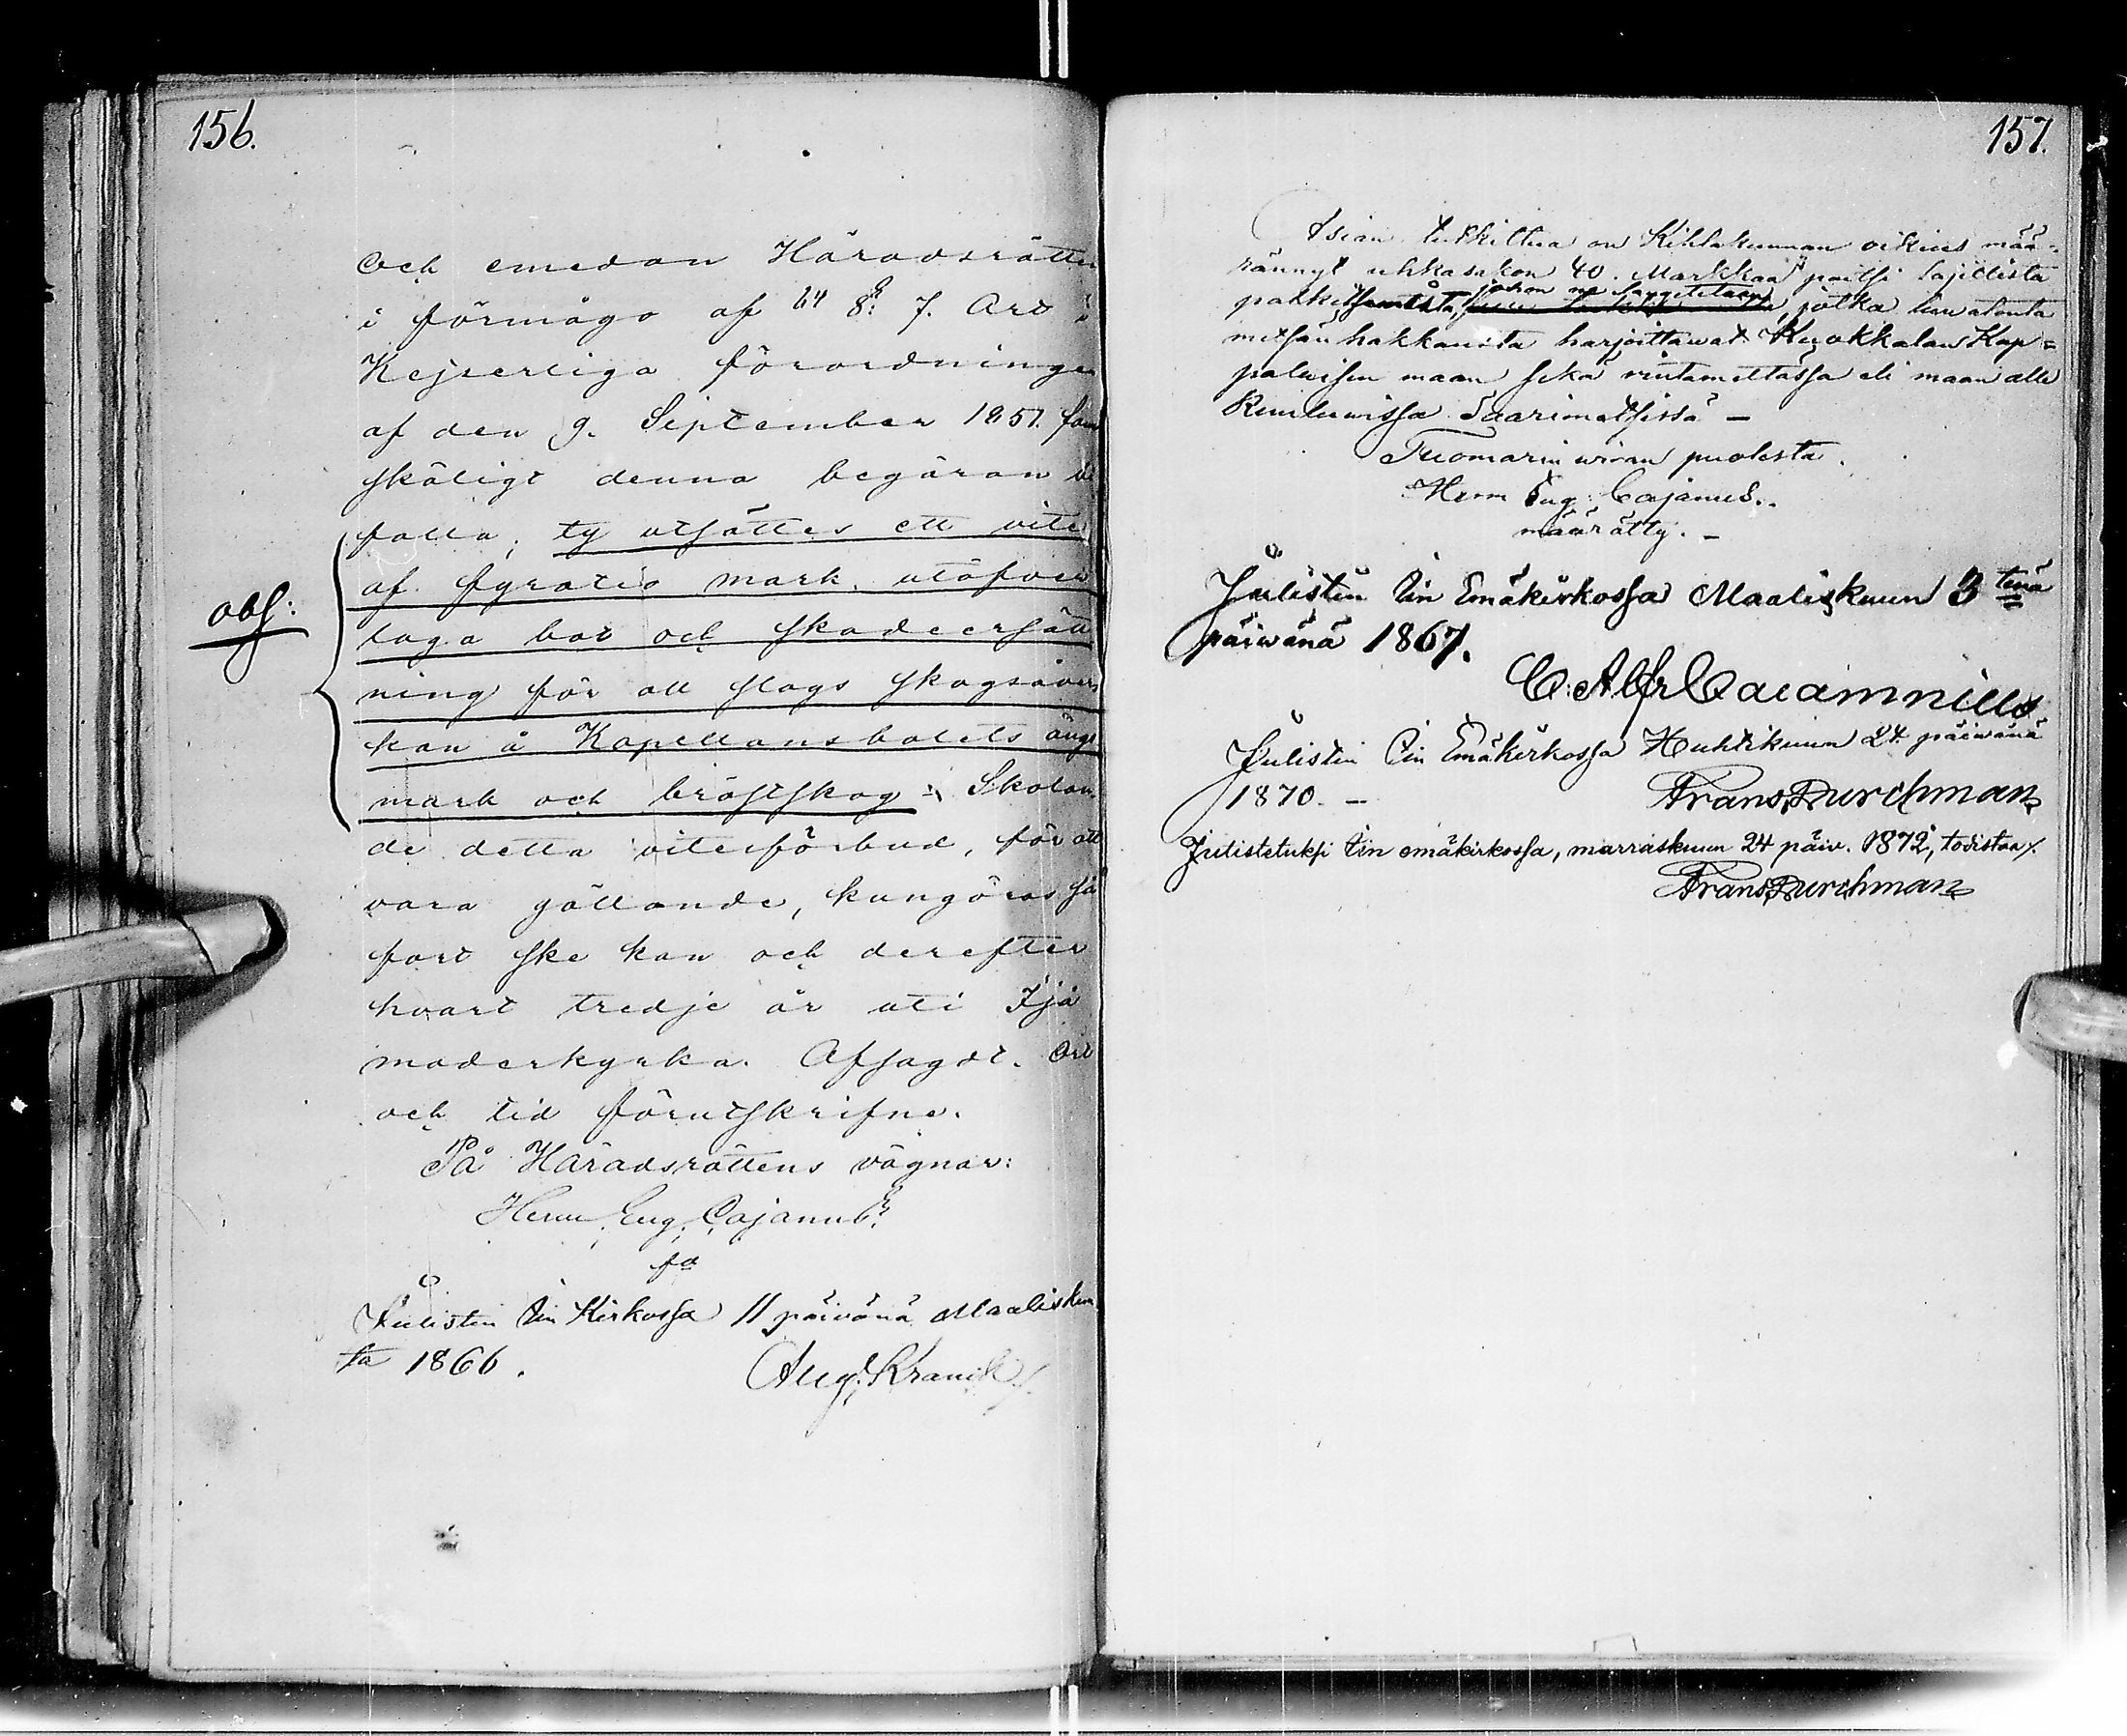 156.
och emedan Häradsrätten
i förmågo af 64 §: 7. Art i
Kejserliga förordningen
af den 9. September 1851. fann
skäligt denna begäran bi
falla; ty utsättes ett vite
af fyratio mark, utöfver
laga bot och skadeersätt
obs:
ning för all slags skogsåver
kan å Kapellansbolets ängs
mark och bröstskog :, Skolan
de detta vitesförbud, för att
vara gällande, kungöras så
fort ske kan och derefter
hvart tredje år uti Ijå
moderkyrka. Afsagdt. Ort
och tid förutskrifne.
På Häradsrättens vägnar:
Herm. Eug. Cajanus
fa
Julistin Iin Kirkossa 11 päivänä Maaliskuu
ta 1866.
Aug. Kranck
157.
Asian tutkittua on Kihlakunnan oikeus mää-
rännyt uhkasakon 40. Markkaa paitsi lajillista
johon ne langetetaan
, jotka luvatonta
metsän hakkausta harjoittawat Kuokkalan Kap=
palaisen maan sekä rintamettässä eli maan alle
Saarimettissä –
Tuomarin wiran puolesta.
Herm Eug: Cajanus.
määrätty. –
Julistin Iin Emäkirkossa Maaliskuun 3 tenä
päiwänä 1867.
C: Alfr
Julistin Iin Emäkirkossa Huhtikuun 24. päiwänä
1870. –
Frans Durchman
Julistetuksi Iin emäkirkossa, marraskuun 24 päiv. 1872, todistaa/.
Frans Durchman